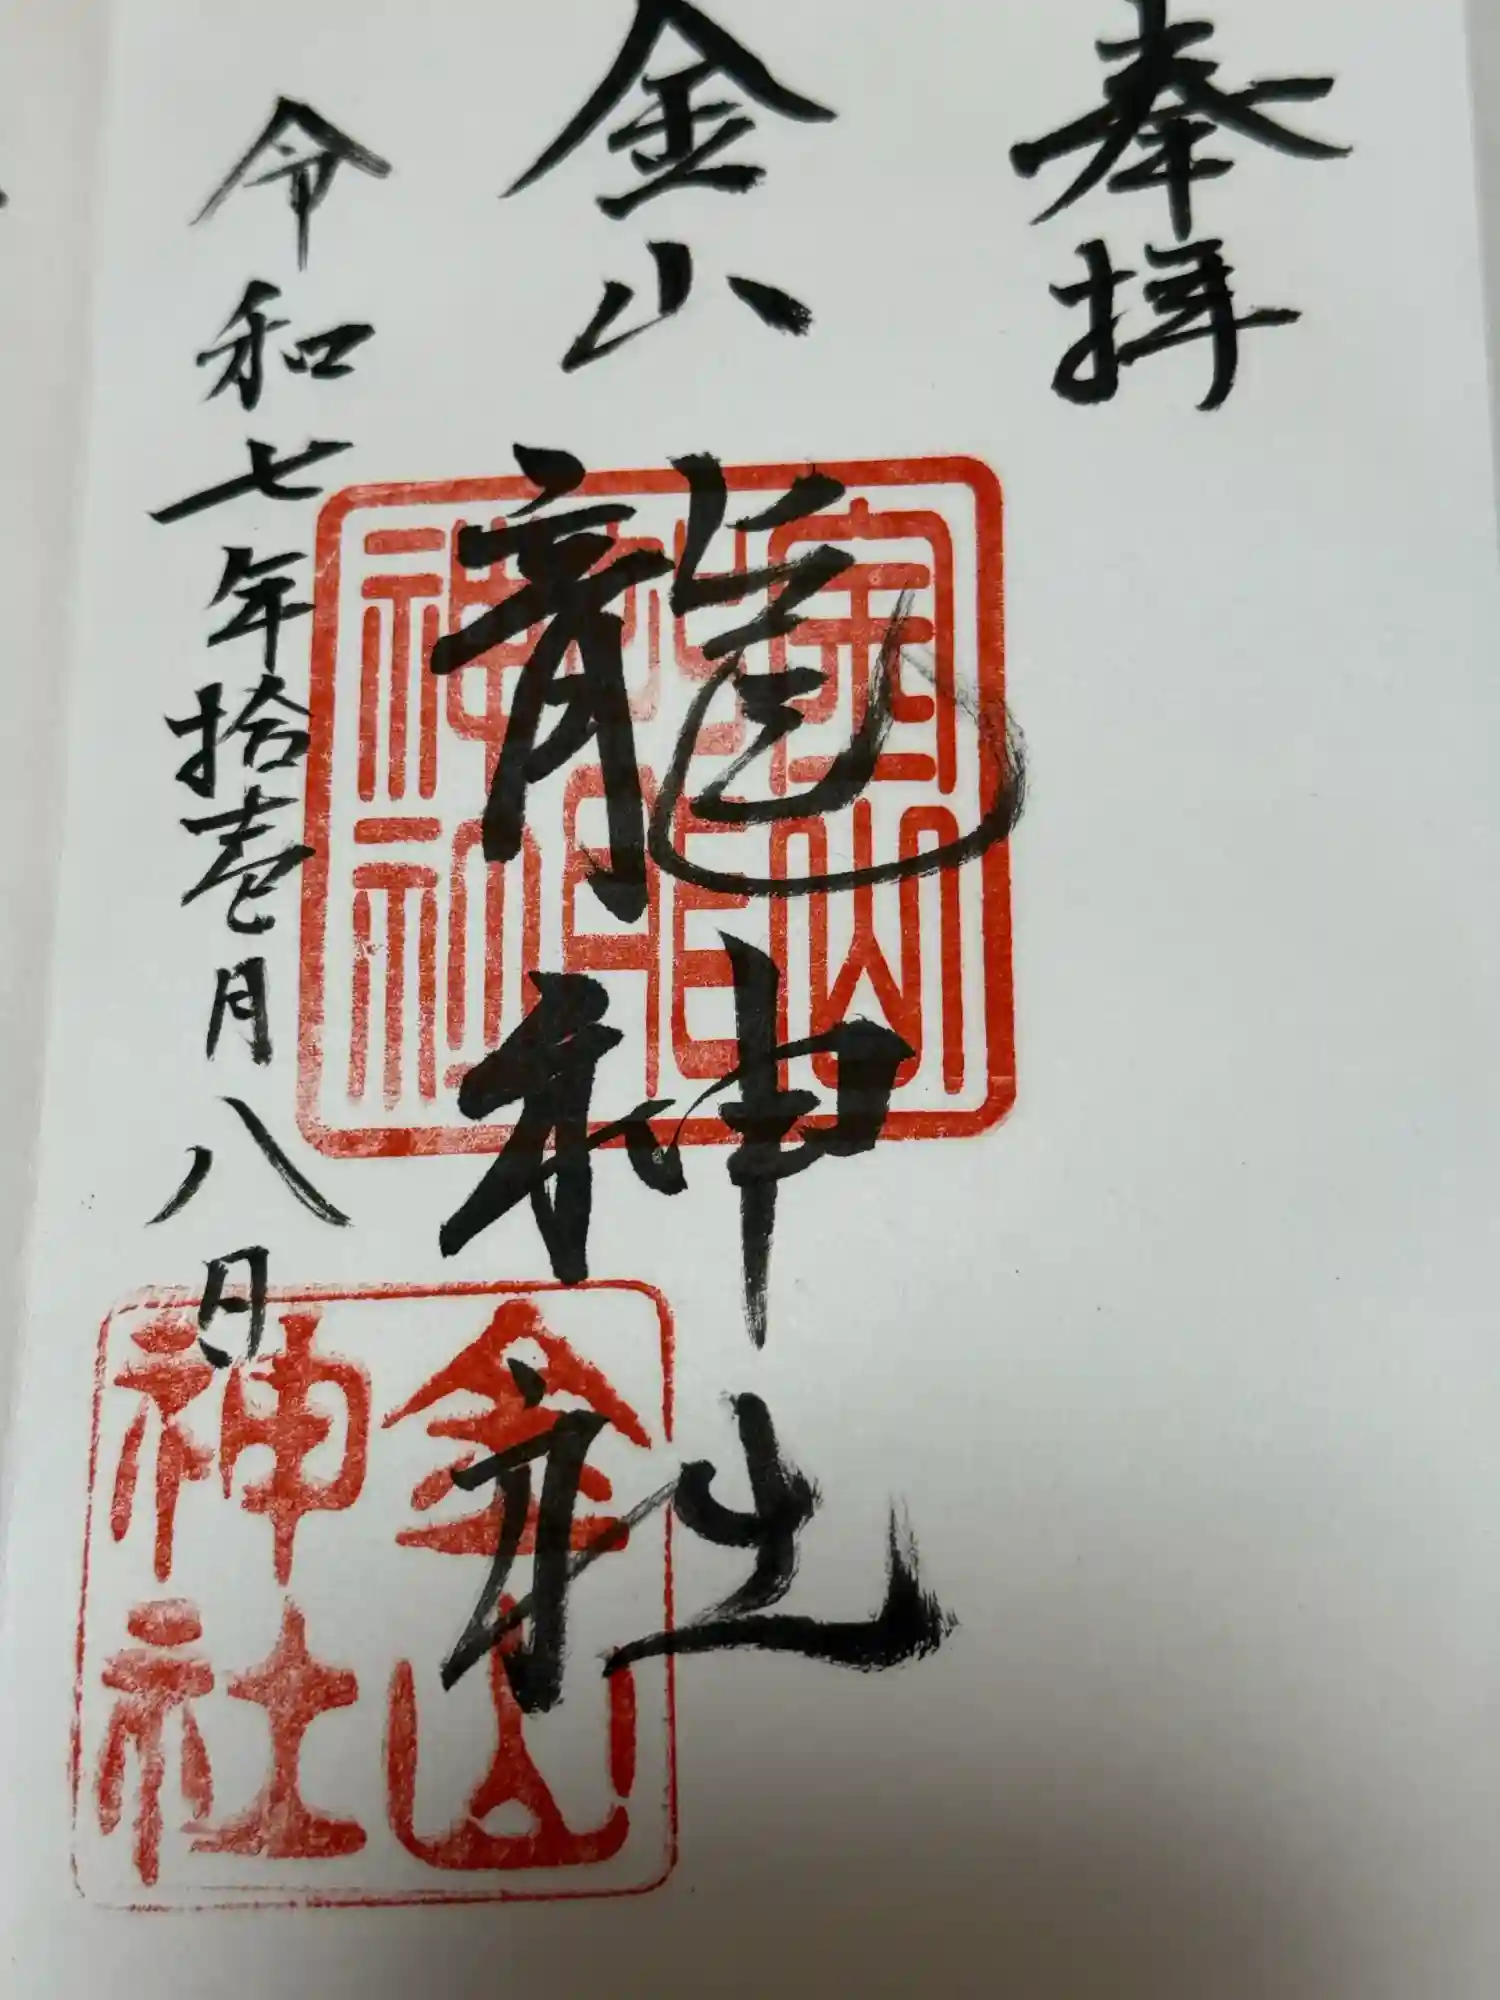 奉拝
金山
龍神社
令和七年拾壱月八日
金山
龍
神社
金山
神社